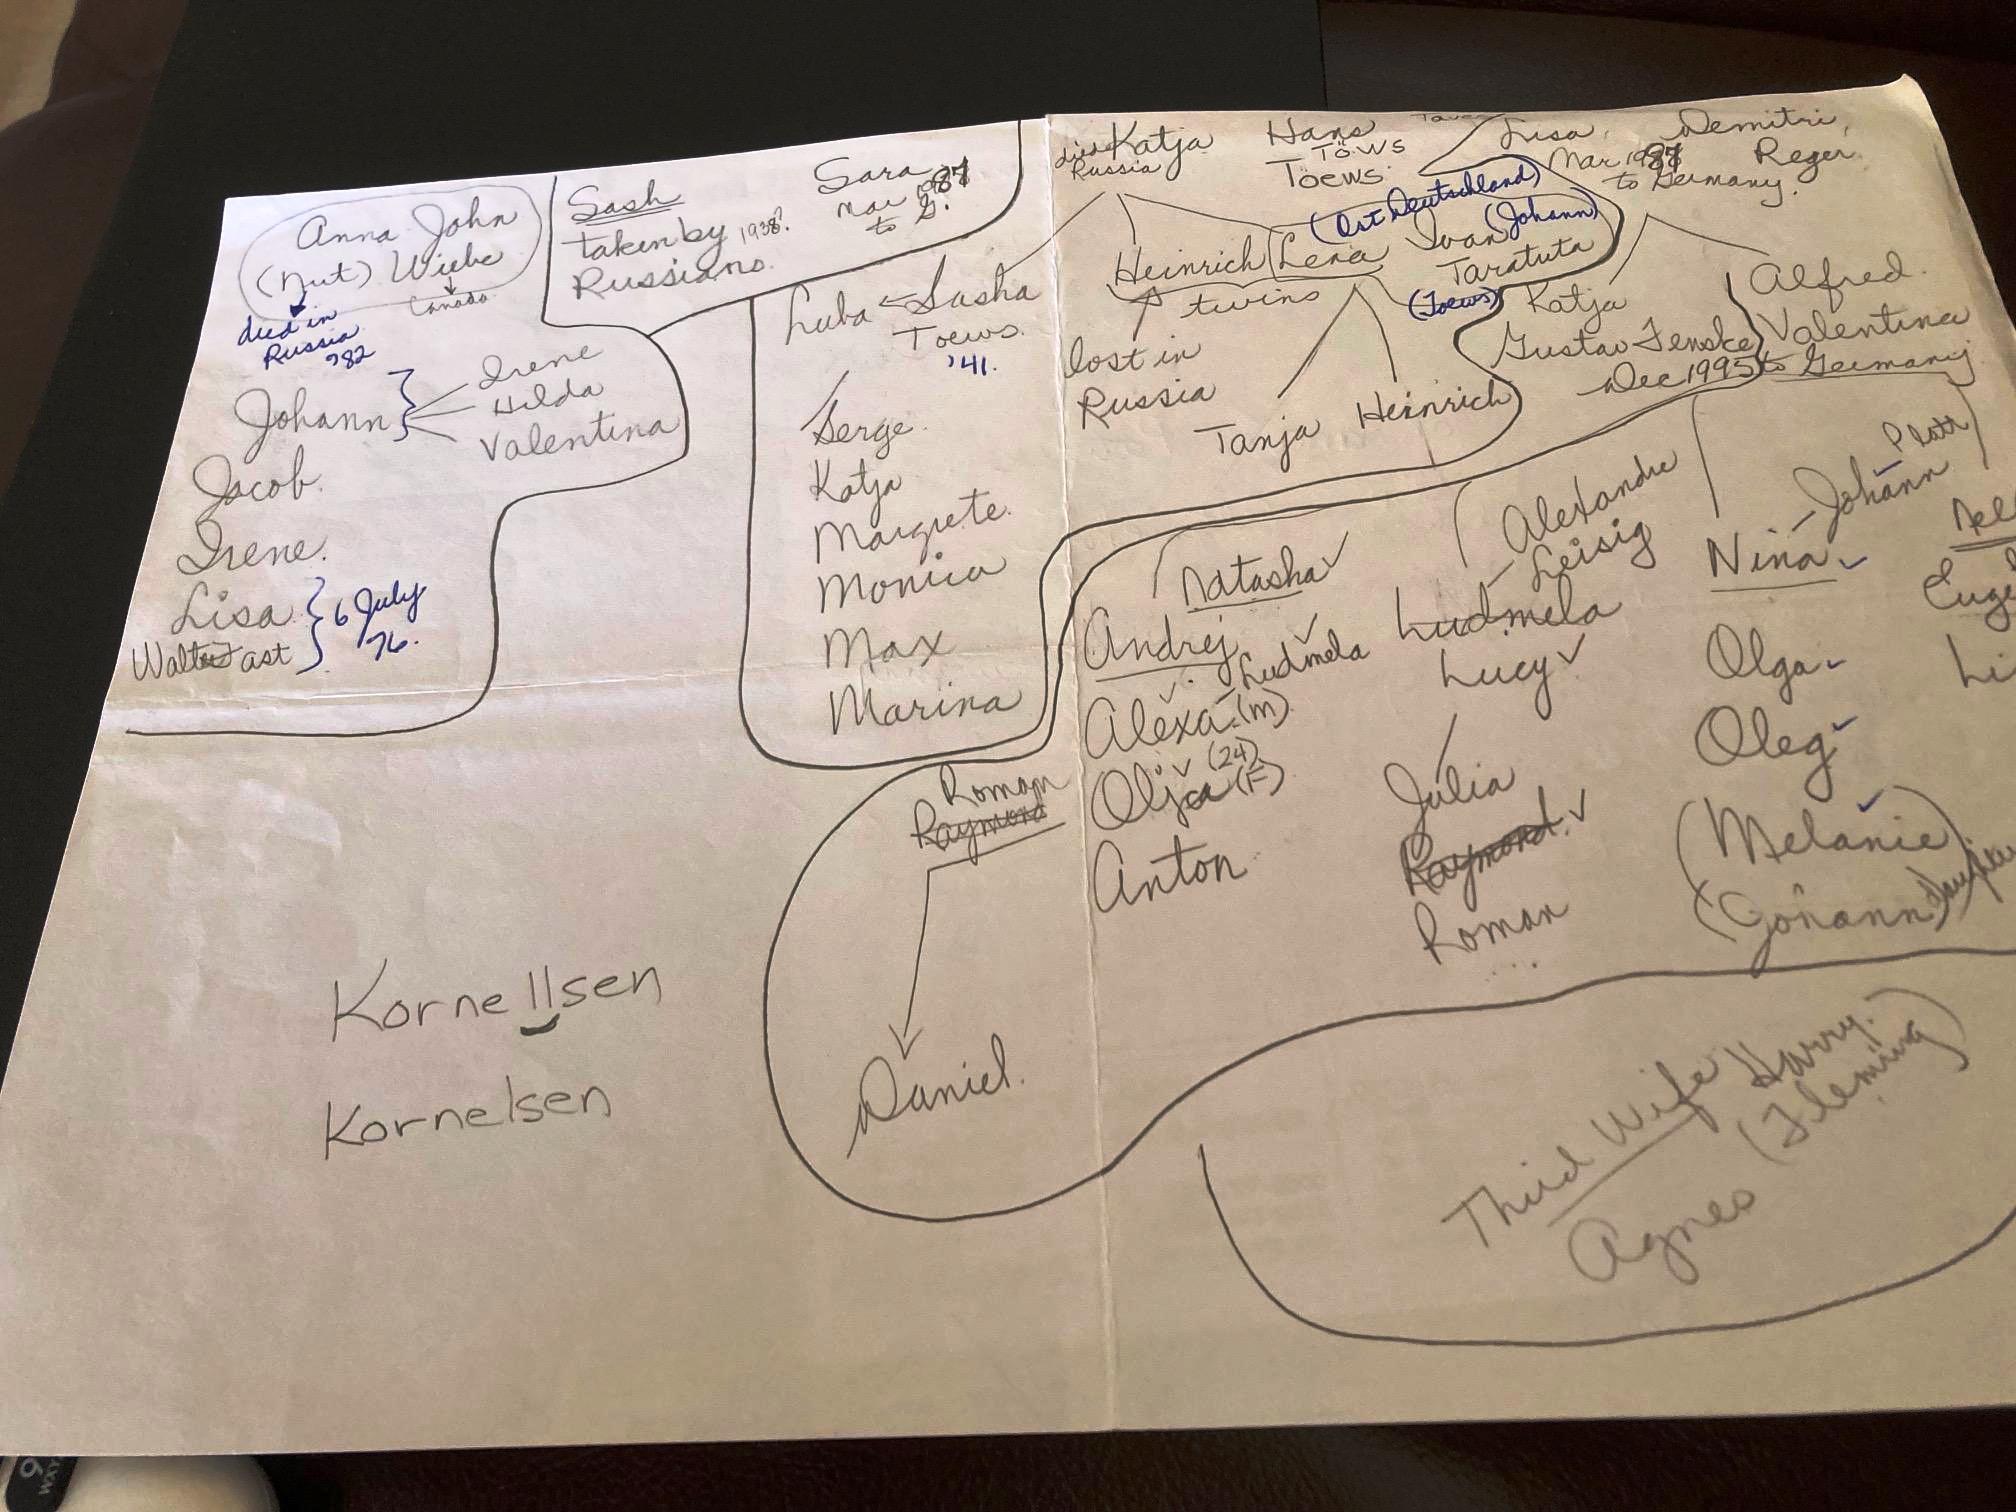 Anna John
(Nut) Wiebe
died in
Russia
'82
Canada
Johann } Irene
Hilda
Valentina
Jacob.
Irene.
Lisa } 6 July
76.
ast
Sash
taken by 1938?
Russians.
Sara
Mar 1987
to G.
died
Russia
Katja
Hans
Töws
Toews.
Heinrich
twins
lost in
Russia
Lena
(Ost Deutschland)
Ivan (Johann)
Taratuta
(Toews)
Tanja Heinrich
Luba ← Sasha
Toews.
'41.
Serge.
Katja
Margrete.
Monica
Max
Marina
Lisa, Demitri,
Reger.
Mar 1987
to Germany.
Katja
Gustav Fenske
Dec 1995 to Germany
Alfred.
Valentina
Natasha ✓
Andrej
Alexa (m) - Ludmela ✓
Olja ✓ (24) (F)
Anton
Alexandre
Leisig
Ludmela
Lucy ✓
Julia
Raymond. ✓
Roman
Platt
Nina - Johann
Olga
Oleg
(Melanie)
(Johann)
Li
Roman
Raymond
Daniel.
Kornellsen
Kornelsen
Third Wife Harry.
Agnes (Fleming)